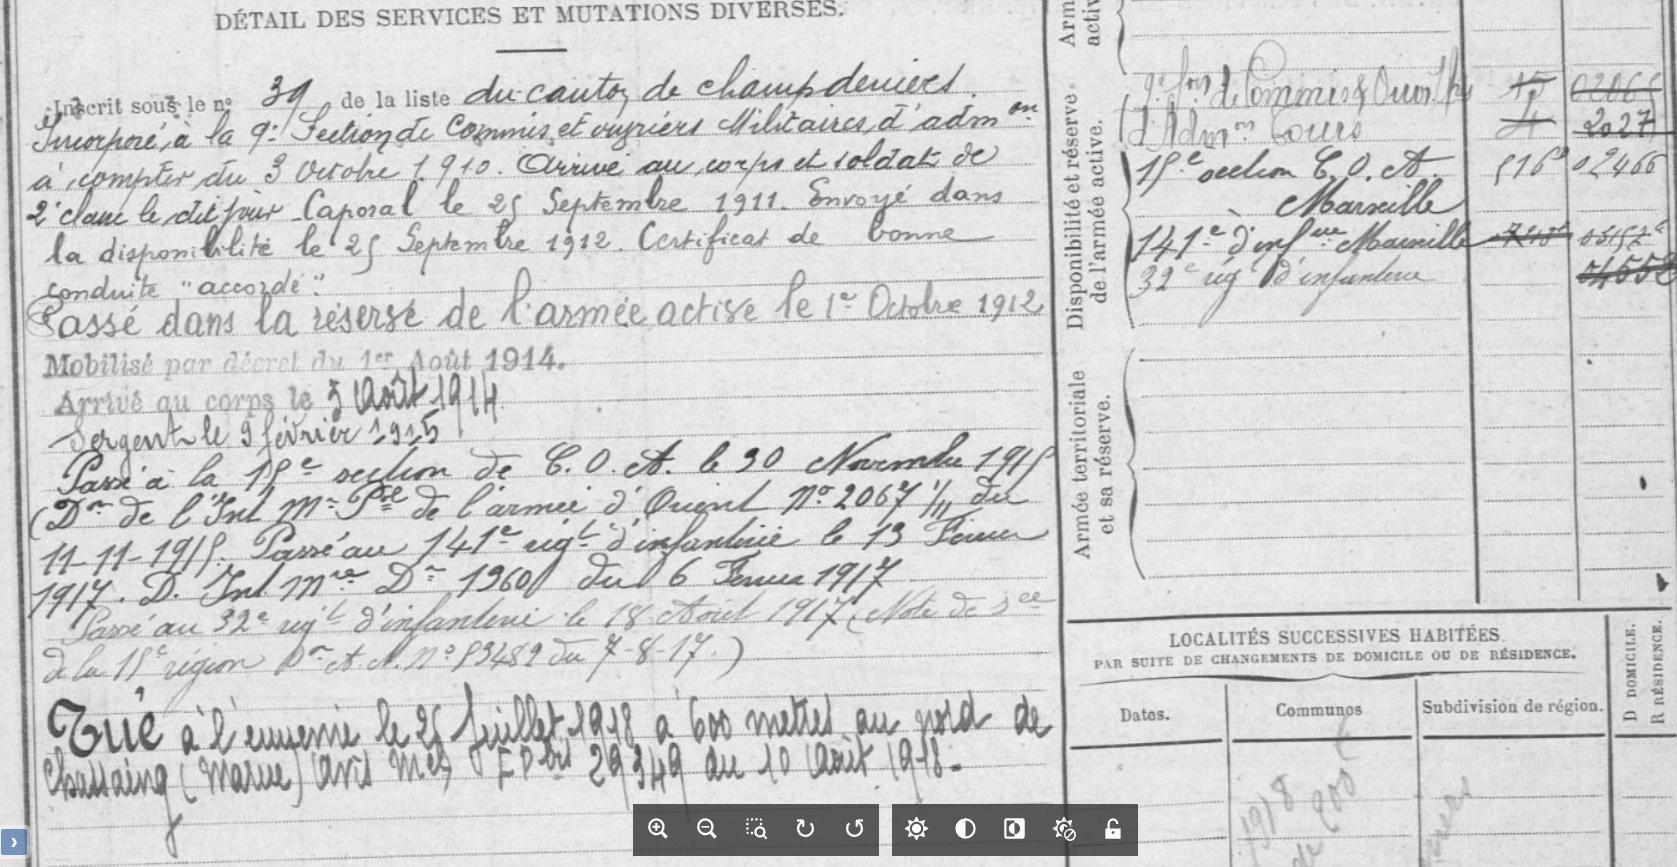 DÉTAIL DES SERVICES ET MUTATIONS DIVERSES.
Inscrit sous le n° 39 de la liste du canton de champdeniers.
Incorporé, à la 9e Section de Commis et ouvriers Militaires, d'admon
à compter du 3 Octobre 1910. Arrivé au corps et soldat de
2e classe le dit jour. Caporal le 25 Septembre 1911. Envoyé dans
la disponibilité le 25 Septembre 1912. Certificat de bonne
conduite "accordé".
Passé dans la réserve de l'armée active le 1er Octobre 1912
Mobilisé par décret du 1er Août 1914.
Arrivé au corps le 3 Août 1914
Sergent le 9 février 1915
Passé à la 15e section de C.O.A. le 30 Novembre 1915
(Don de l'Int Mre Pal de l'armée d'Orient No 2067 1/11 du
11-11-1915. Passé au 141e régt d'infanterie le 13 Février
1917. D. Int. Mre Don 1360 du 6 Fevrier 1917
Passé au 32e régt d'infanterie le 18 Août 1917 (Note de
de la 15e région No 53489 du 7-8-17.)
Tué à l'ennemi le 25 Juillet 1918 à 600 mettres au nord de
(Marne) avis 29349 du 10 Août 1918.
Disponibilité et réserve
de l'armée active.
de Commis & Ouv.
d'Admon Tours
2027
15e section C.O.A.
Marseille
02466
141e d'infrie Marseille
32e rég d'infanterie
Armée territoriale
et sa réserve.
LOCALITÉS SUCCESSIVES HABITÉES
PAR SUITE DE CHANGEMENTS DE DOMICILE OU DE RÉSIDENCE.
Dates.
Communes
Subdivision de région.
D DOMICILE.
R RÉSIDENCE.
1918